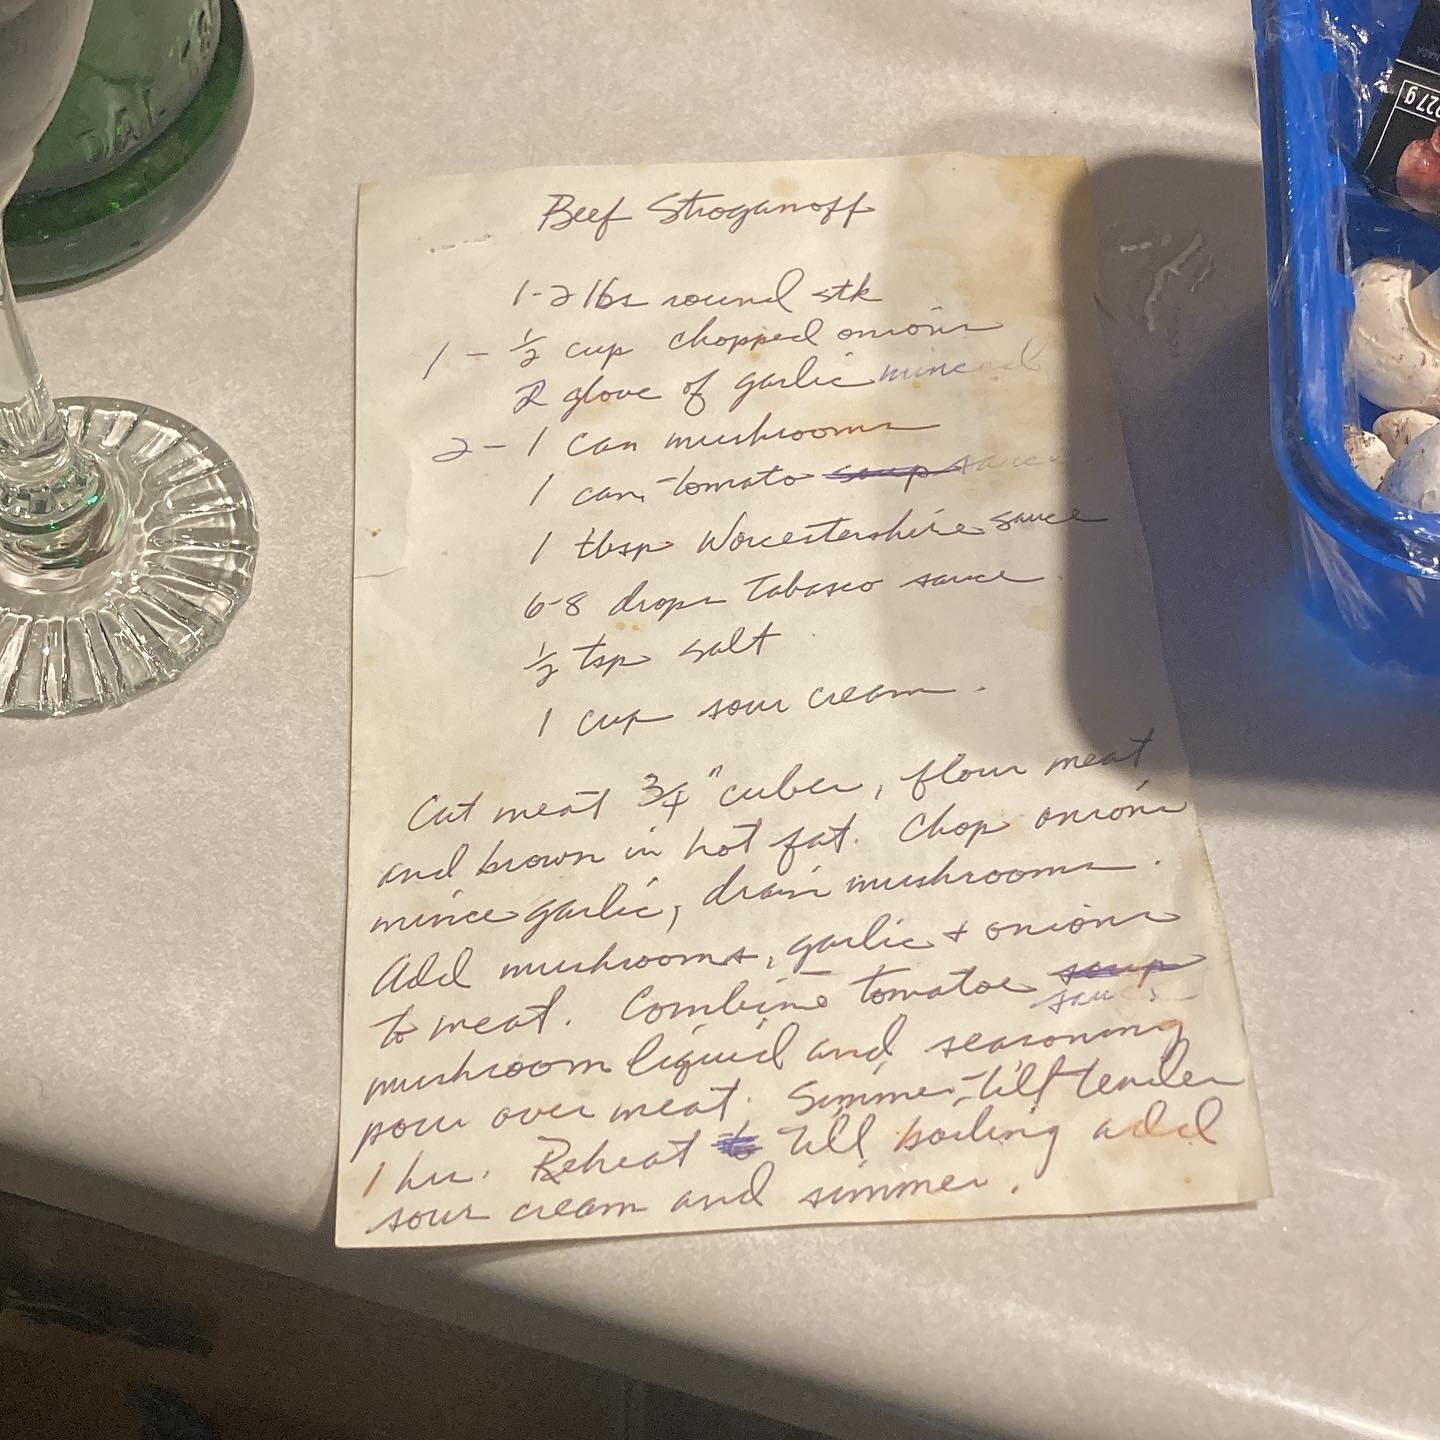 Beef Stroganoff
1-2 lbs round stk
1 - ½ cup chopped onions
2 glove of garlic minced
2 - 1 can mushrooms
1 can tomato soup sauce
1 tbsp Worcestershire sauce
6-8 drops Tabasco sauce
½ tsp salt
1 cup sour cream.
Cut meat ¾" cubes, flour meat
and brown in hot fat. Chop onions
mince garlic, drain mushrooms.
Add mushrooms, garlic + onions
to meat. Combine tomatoe soup
sauce
mushroom liquid and seasoning
pour over meat. Simmer till tender
1 hr. Reheat to till boiling add
sour cream and simmer.
227g